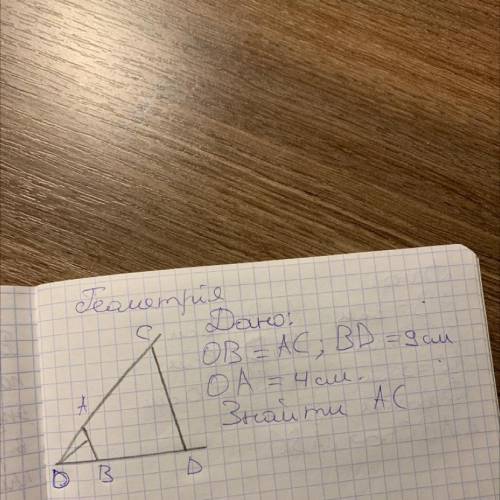 Геометрія
Дано:
OB = AC; BD = 9 см
OA = 4 см.
Знайти AC
C
A
O B D